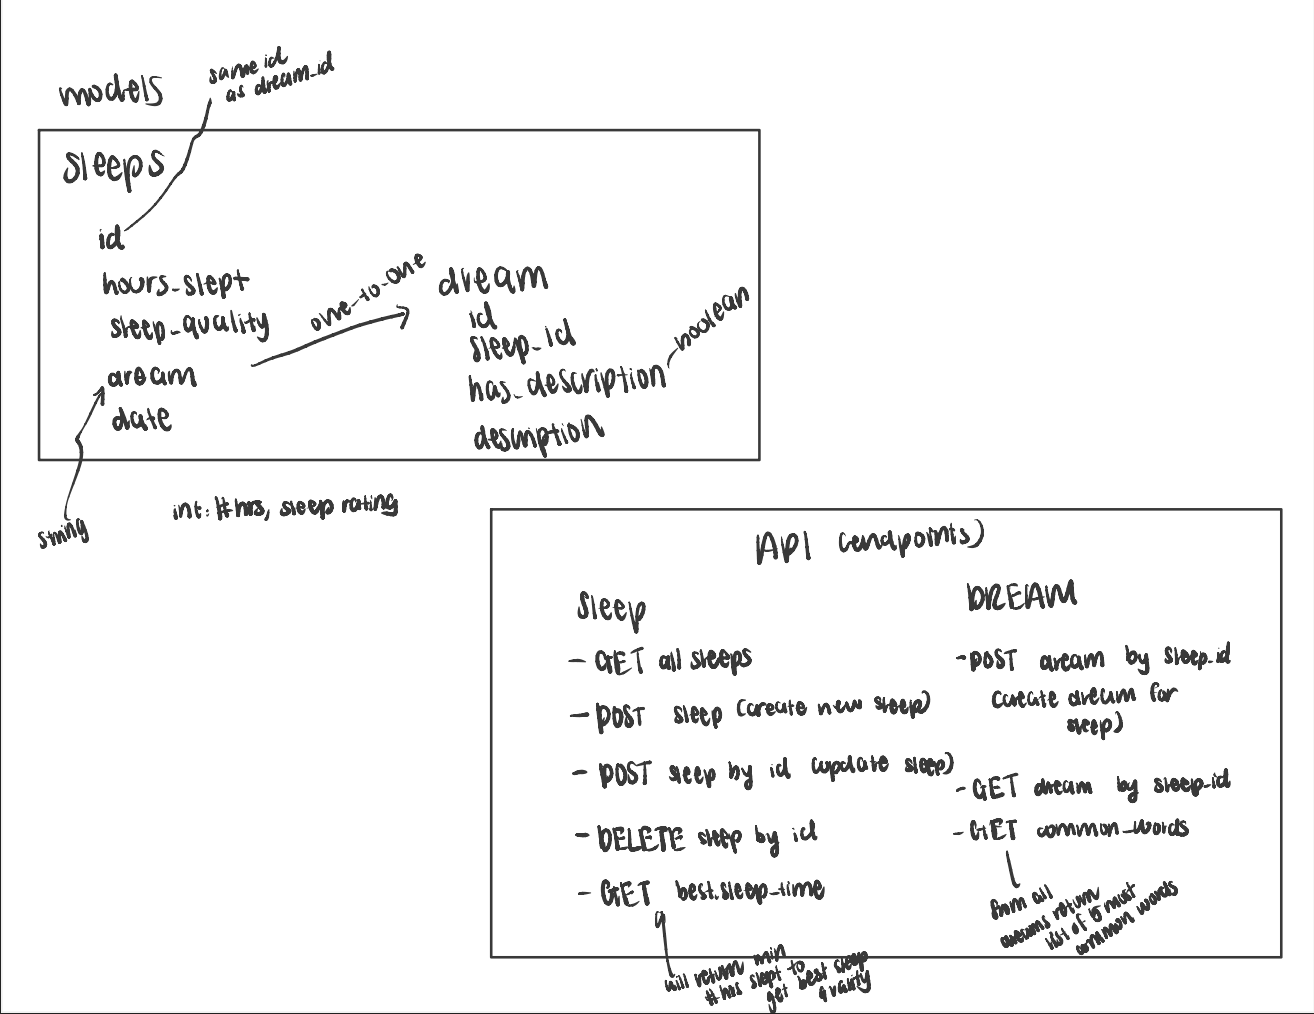 models
same id
as dream_id
sleeps
id
hours_slept
sleep_quality
dream
date
one_to_one
dream
id
sleep_id
has_description
description
boolean
string
int: #hrs, sleep rating
API (endpoints)
sleep
- GET all sleeps
- POST sleep (create new sleep)
- POST sleep by id (update sleep)
- DELETE sleep by id
- GET best_sleep_time
will return min
#hrs slept to
get best sleep
quality
DREAM
- POST dream by sleep_id
(create dream for
sleep)
- GET dream by sleep_id
- GET common_words
from all
dreams return
list of most
common words